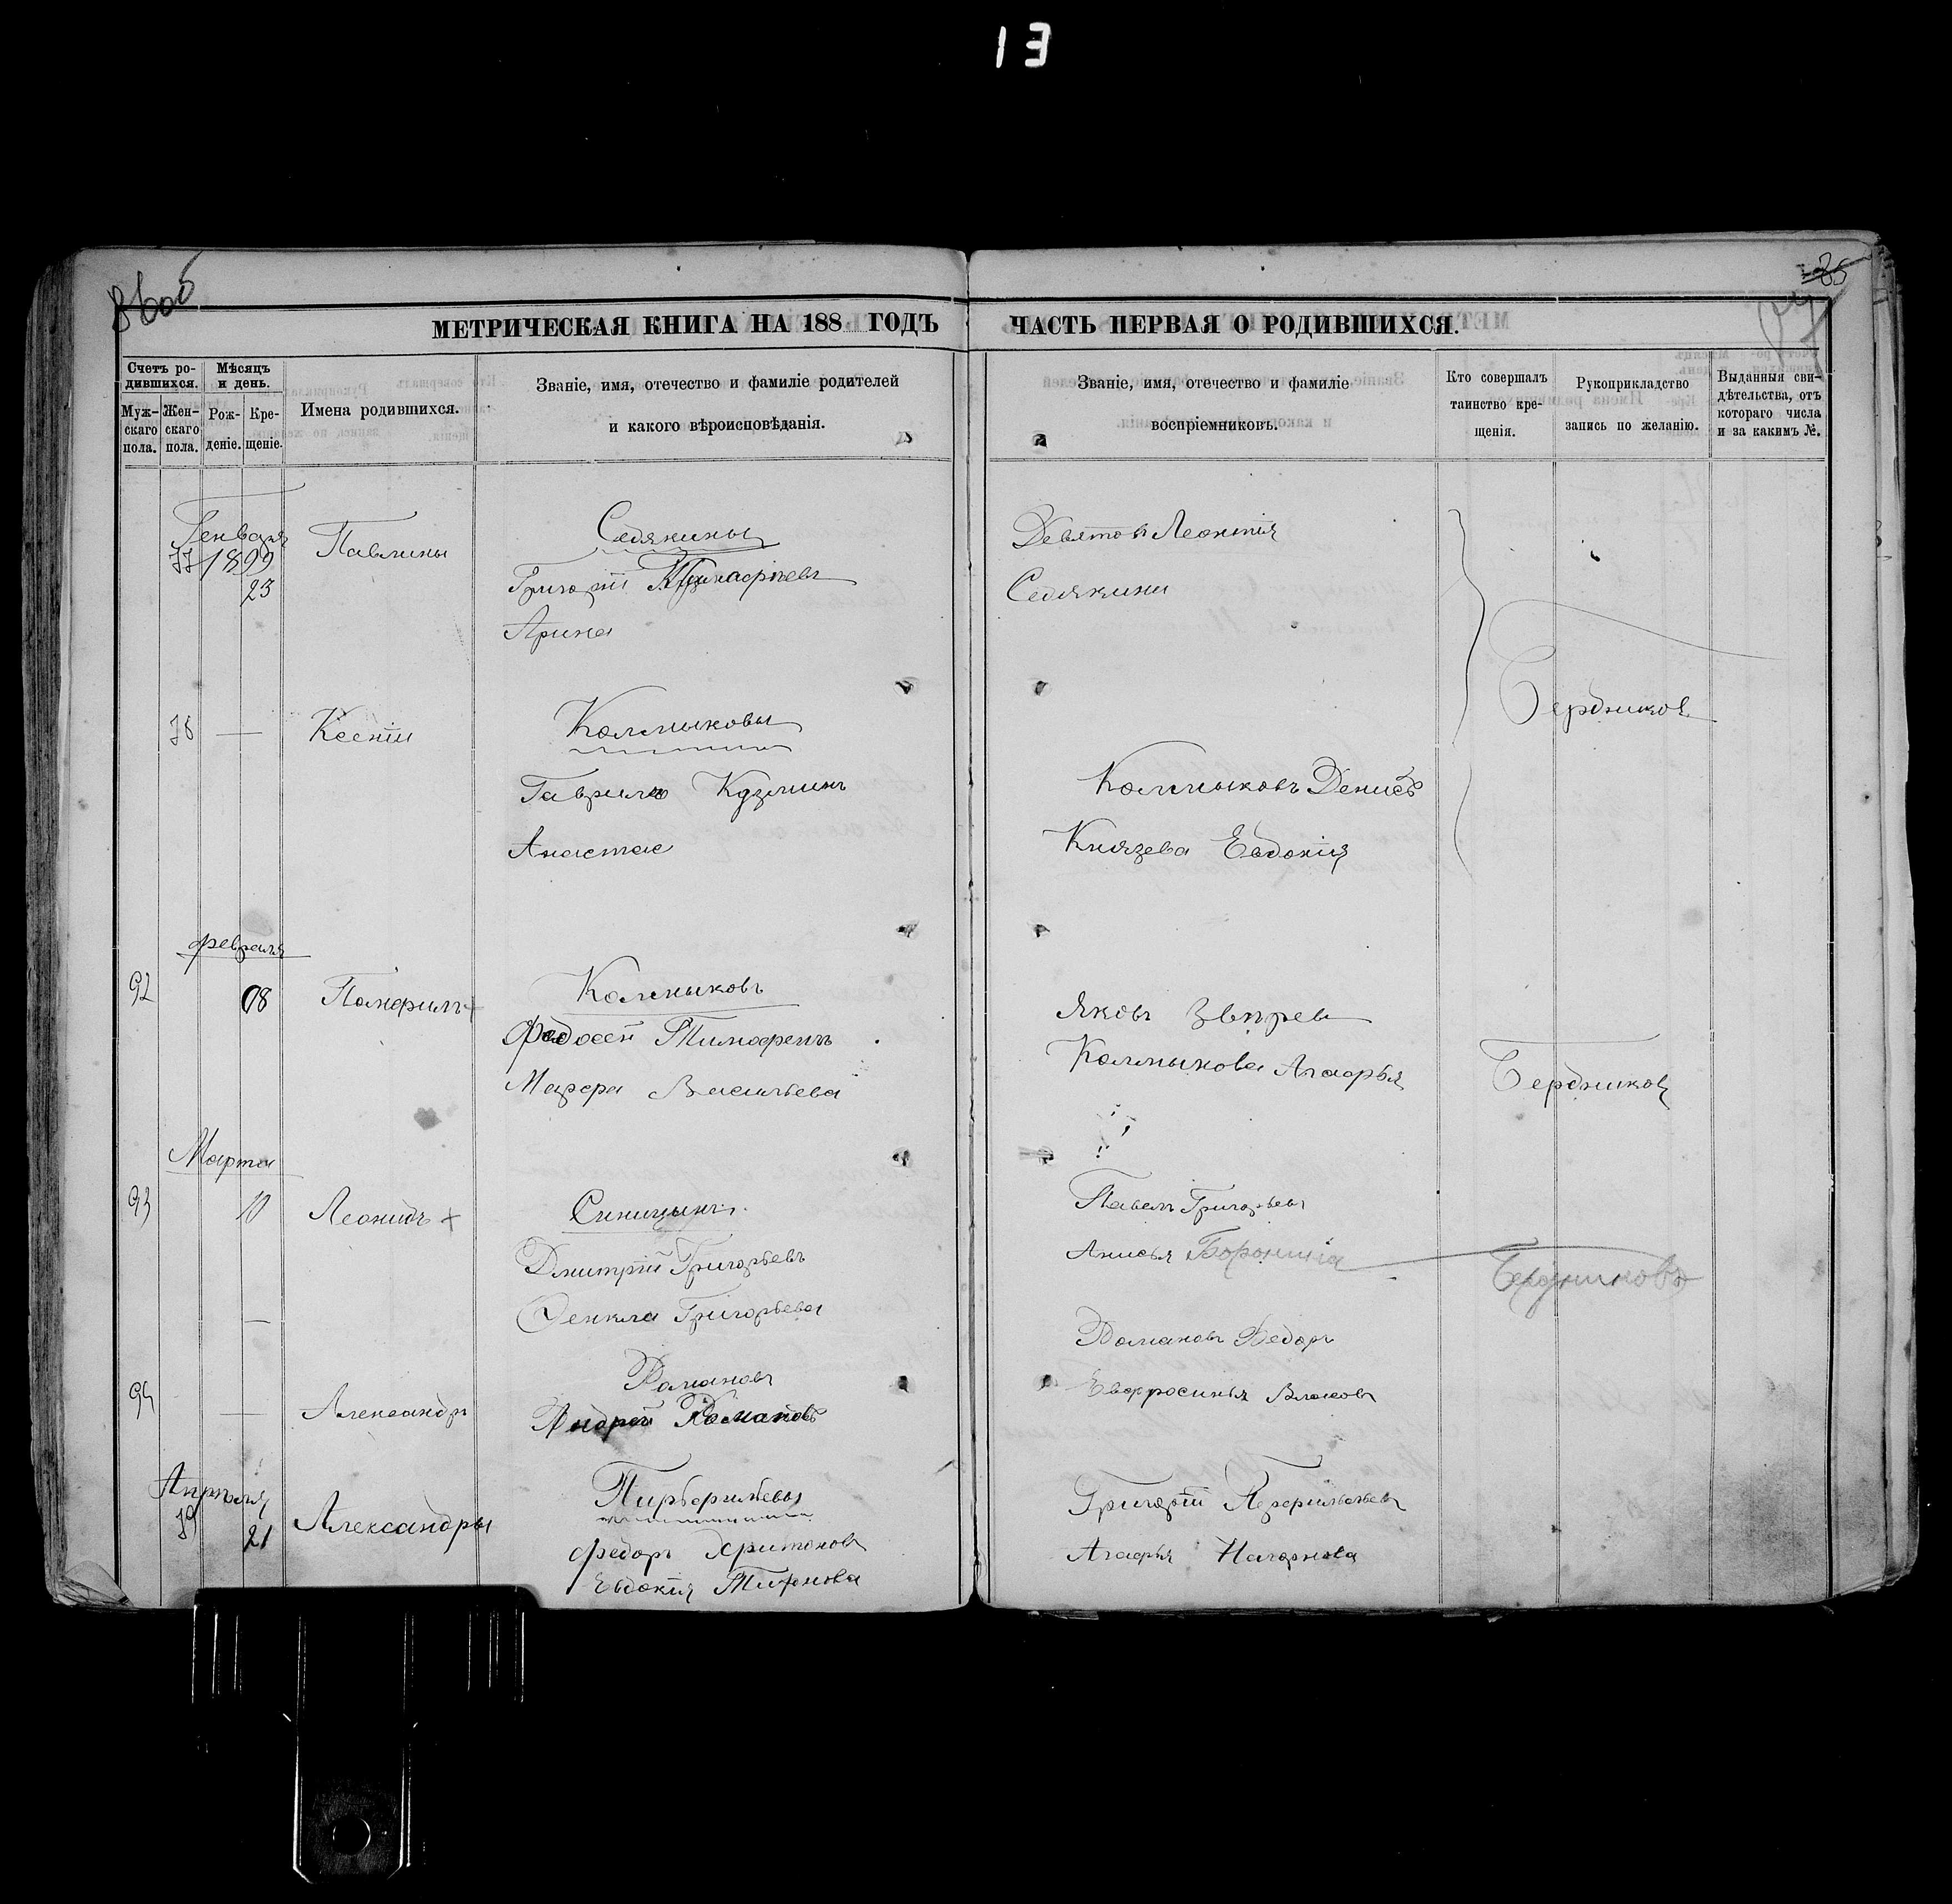 13
86об
35
МЕТРИЧЕСКАЯ КНИГА НА 188 ГОДЪ
ЧАСТЬ ПЕРВАЯ О РОДИВШИХСЯ.
Счетъ ро-
дившихся.
Муж-
скаго
пола.
Жен-
скаго
пола.
Мѣсяцъ
и день.
Рож-
деніе.
Кре-
щеніе.
Имена родившихся.
Званіе, имя, отечество и фамиліе родителей
и какого вѣроисповѣданія.
Званіе, имя, отечество и фамиліе
воспріемниковъ.
Кто совершалъ
таинство кре-
щенія.
Рукоприкладство
запись по желанію.
Выданныя сви-
дѣтельства, отъ
котораго числа
и за какимъ №.
Генваря
77 1899
23
Павлины
Седякины
Григорій
Арина
Девятовъ Леонтія
Седякини
Бердников
78 —
Ксеніи
Калмыковы
Гаврило Кузминъ
Анастас
Калмыковъ Денисъ
Князева Евдокія
февраля
92
08
Панфилъ +
Калмыковъ
Федосей Тимофеичъ
Марфа Васильева
Яковъ Звѣрев
Калмыкова Агафья
Бердников
Марта
93
10
Леонидъ +
Синицынъ.
Дмитрій Григорьевъ
Фенкла Григорьева
Павелъ Григорьевъ
Анисья
Бердниковъ
94
—
Александръ
Романовъ
Андрей Романовъ
Романовъ Федоръ
Евфросинья Власова
Апрѣля
79
21
Александры
Пирьфильевы
Федоръ Харитонов
Евдокія
Григорій Перфильевъ
Агафья Нагорнова